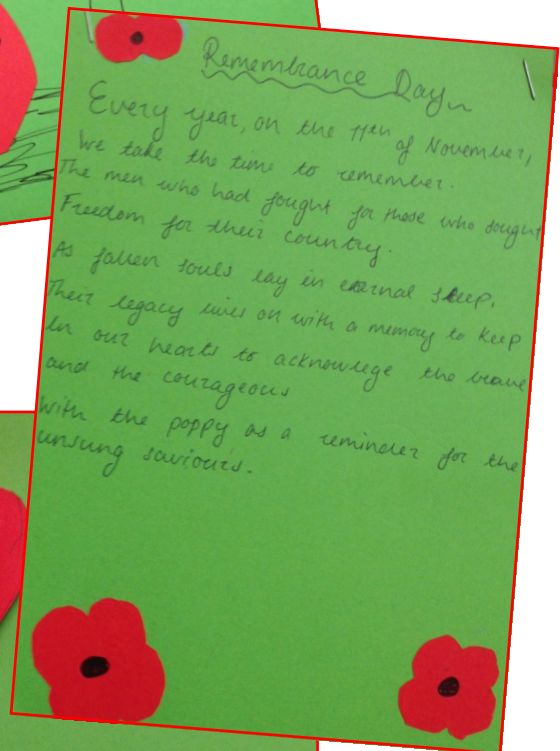 Remembrance Day
Every year, on the 11th of November,
We take the time to remember.
The men who had fought for those who sought
Freedom for their country.
As fallen souls lay in eternal sleep,
Their legacy lives on with a memory to keep
In our hearts to acknowlege the brave
and the courageous
With the poppy as a reminder for the
unsung saviours.